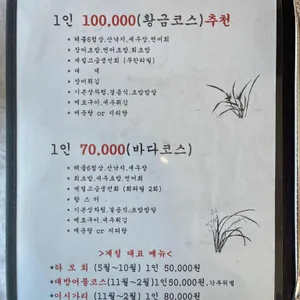 1인 100,000(황금코스)추천
• 해물6합상,산낙지,새우장,연어회
• 장어초밥,연어초밥,회초밥
• 계절고급생선회 (무한리필)
• 대 게
• 장어튀김
• 기본상차림,점음식,초밥쌈밥
• 메로구이,새우튀김
• 매운탕 or 지리탕
1인 70,000(바다코스)
• 해물6합상,산낙지,새우장
• 회초밥,새우초밥,연어회
• 계절고급생선회 (회리필 2회)
• 랍 스 터
• 기본상차림,점음식,초밥쌈밥
• 메로구이,새우튀김
• 매운탕 or 지리탕
>계절 대표 메뉴<
*하 모 회 (5월~10월) 1인 50,000원
*대방어풀코스(11월~2월)1인50,000원,
*이시가리 (11월~2월) 1인 80,000원